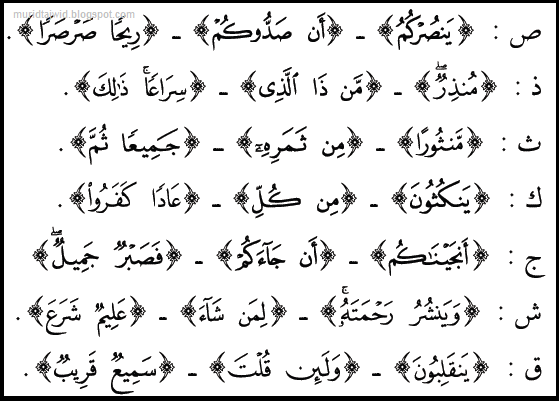 muridtajwid.blogspot.com
ص : ﴿يَنصُرْكُمُ﴾ ـ ﴿أَن صَدُّوكُمْ﴾ ـ ﴿رِيحًا صَرْصَرًا﴾ .
ذ : ﴿مُنذِرٌۖ﴾ ـ ﴿مَّن ذَا ٱلَّذِى﴾ ـ ﴿سِرَاعًاۚ ذَٰلِكَ﴾ .
ث : ﴿مَّنثُورًا﴾ ـ ﴿مِن ثَمَرِهِۦٓ﴾ ـ ﴿جَمِيعًا ثُمَّ﴾ .
ك : ﴿يَنكُثُونَ﴾ ـ ﴿مِن كُلِّ﴾ ـ ﴿عَادًا كَفَرُوا۟﴾ .
ج : ﴿أَنجَيْنَـٰكُم﴾ ـ ﴿أَن جَآءَكُمْ﴾ ـ ﴿فَصَبْرٌ جَمِيلٌۖ﴾
ش : ﴿وَيَنشُرُ رَحْمَتَهُۥۚ﴾ ـ ﴿لِمَن شَآءَ﴾ ـ ﴿عَلِيمٌ شَرَعَ﴾ .
ق : ﴿يَنقَلِبُونَ﴾ ـ ﴿وَلَئِن قُلْتَ﴾ ـ ﴿سَمِيعٌ قَرِيبٌ﴾ .